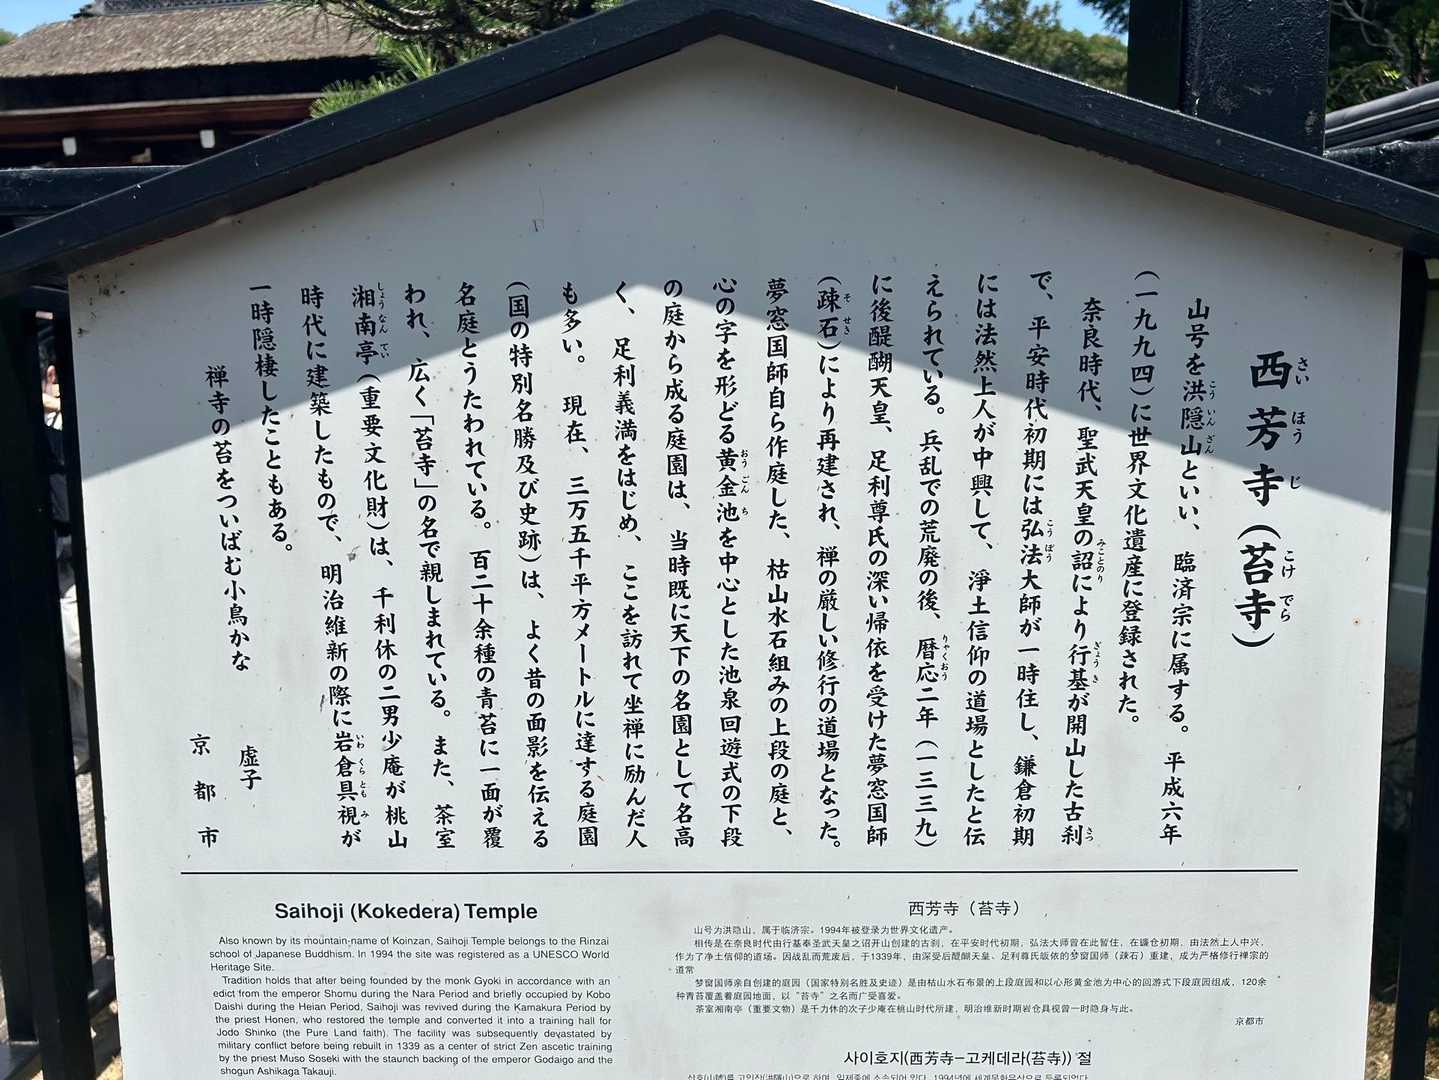 西芳寺（苔寺）
さいほうじ
こけでら
山号を洪隠山といい、臨済宗に属する。平成六年
こういんざん
（一九九四）に世界文化遺産に登録された。
奈良時代、聖武天皇の詔により行基が開山した古刹
みことのり
ぎょうき
さつ
で、平安時代初期には弘法大師が一時住し、鎌倉初期
こうぼう
には法然上人が中興して、浄土信仰の道場としたと伝
えられている。兵乱での荒廃の後、暦応二年（一三三九）
りゃくおう
に後醍醐天皇、足利尊氏の深い帰依を受けた夢窓国師
（疎石）により再建され、禅の厳しい修行の道場となった。
そせき
夢窓国師自ら作庭した、枯山水石組みの上段の庭と、
心の字を形どる黄金池を中心とした池泉回遊式の下段
おうごんち
の庭から成る庭園は、当時既に天下の名園として名高
く、足利義満をはじめ、ここを訪れて坐禅に励んだ人
も多い。現在、三万五千平方メートルに達する庭園
（国の特別名勝及び史跡）は、よく昔の面影を伝える
名庭とうたわれている。百二十余種の青苔に一面が覆
われ、広く「苔寺」の名で親しまれている。また、茶室
湘南亭（重要文化財）は、千利休の二男少庵が桃山
しょうなんてい
時代に建築したもので、明治維新の際に岩倉具視が
いわくらともみ
一時隠棲したこともある。
禅寺の苔をついばむ小鳥かな
虚子
京都市
Saihoji (Kokedera) Temple
Also known by its mountain-name of Koinzan, Saihoji Temple belongs to the Rinzai
school of Japanese Buddhism. In 1994 the site was registered as a UNESCO World
Heritage Site.
Tradition holds that after being founded by the monk Gyoki in accordance with an
edict from the emperor Shomu during the Nara Period and briefly occupied by Kobo
Daishi during the Heian Period, Saihoji was revived during the Kamakura Period by
the priest Honen, who restored the temple and converted it into a training hall for
Jodo Shinko (the Pure Land faith). The facility was subsequently devastated by
military conflict before being rebuilt in 1339 as a center of strict Zen ascetic training
by the priest Muso Soseki with the staunch backing of the emperor Godaigo and the
shogun Ashikaga Takauji.
西芳寺（苔寺）
山号为洪隐山，属于临济宗。1994年被登录为世界文化遗产。
相传是在奈良时代由行基奉圣武天皇之诏开山创建的古刹，在平安时代初期，弘法大师曾在此暂住，在镰仓初期，由法然上人中兴，
作为了净土信仰的道场。因战乱而荒废后，于1339年，由深受后醍醐天皇、足利尊氏皈依的梦窗国师（疎石）重建，成为严格修行禅宗的
道常
梦窗国师亲自创建的庭园（国家特别名胜及史迹）是由枯山水石布景的上段庭园和以心形黄金池为中心的回游式下段庭园组成，120余
种青苔覆盖着庭园地面，以“苔寺”之名而广受喜爱。
茶室湘南亭（重要文物）是千力休的次子少庵在桃山时代所建，明治维新时期岩仓具视曾一时隐身与此。
京都市
사이호지(西芳寺-고케데라(苔寺)) 절